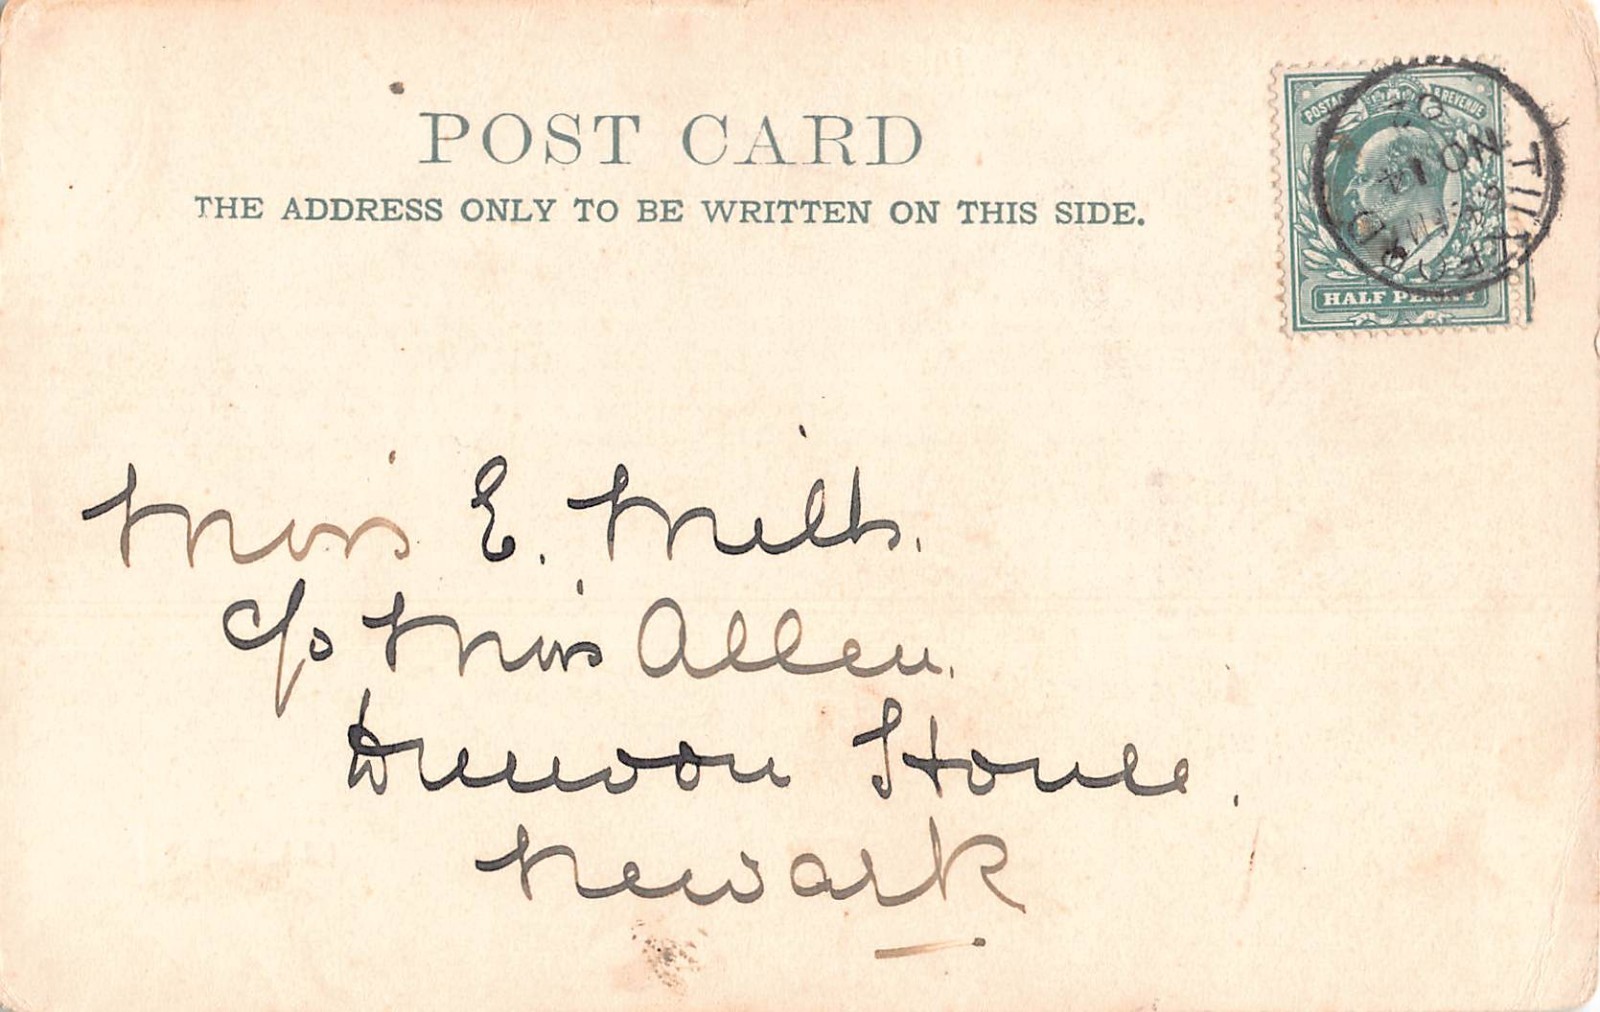 POST CARD
THE ADDRESS ONLY TO BE WRITTEN ON THIS SIDE.
POSTAGE & REVENUE
HALF PENNY
NO 14
02
Miss E. Mills.
c/o Miss Allen.
House.
Newark